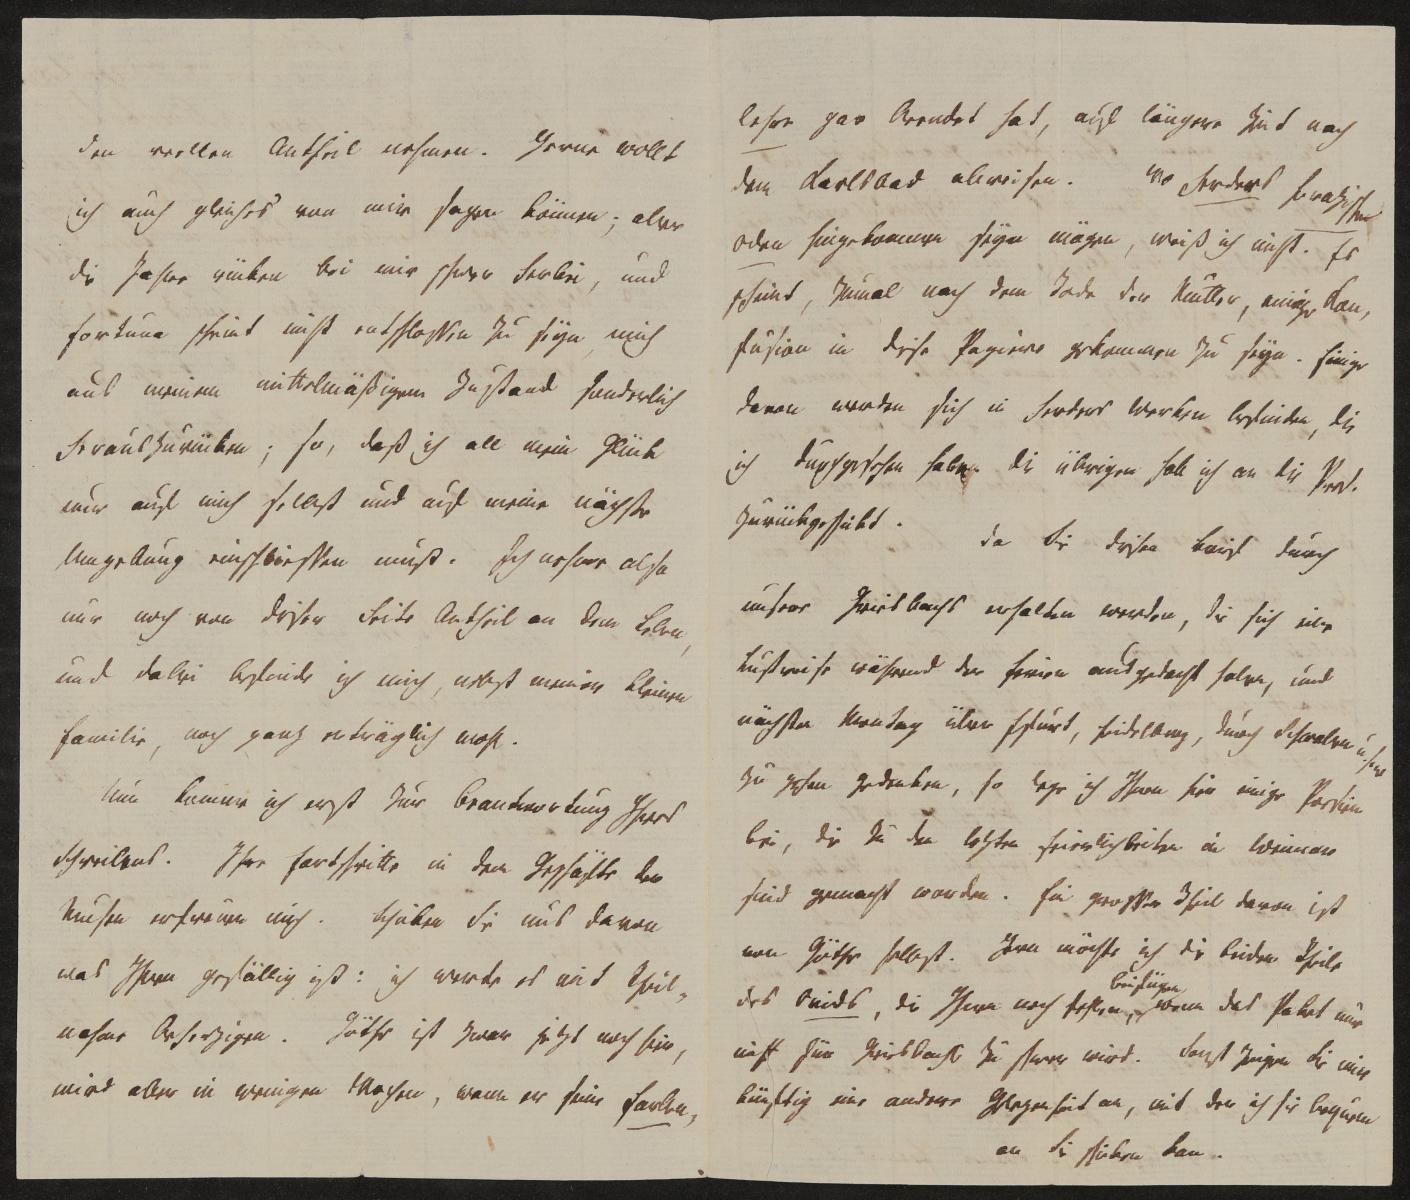 den vollen Antheil nehmen. Gerne wollt
ich auch gleiches von mir sagen können; aber
die Jahre rücken bei mir schwer herbei, und
Fortuna scheint nicht entschlossen zu seyn, mich
aus meinem mittelmäßigen Zustand sonderlich
herauszurücken; so, daß ich all mein Glück
nur auf mich selbst und auf meine nächste
Umgebung einschliessen muß. Ich nehme also
nur noch von dieser Seite Antheil an dem Leben,
und dabei befinde ich mich, nebst meiner kleinen
Familie, noch ganz erträglich wohl.
Nun komme ich erst zur Beantwortung Ihres
Schreibens. Ihre Fortschritte in dem Geschäfte der
Musen erfreuen mich. Schicken Sie uns davon
was Ihnen gefällig ist: ich werde es mit Theil-
nahme beherzigen. Göthe ist zwar jetzt noch hier,
wird aber in wenigen Wochen, wenn er seine Farben-
lehre gar beendet hat, auf längere Zeit nach
dem Karlsbad abreisen. Wo Herders horazische
Oden hingekommen seyn mögen, weiß ich nicht. Es
scheint, zumal nach dem Tode der Mutter, einige Kon-
fusion in diese Papiere gekommen zu seyn. Einige
davon werden sich in Herders Werken befinden, die
ich durchgesehen habe die übrigen hab ich an die Prof.
zurückgeschikt. Da Sie diesen Brief durch
unsere Griesbachs erhalten werden, die sich eine
Lustreise während der Ferien ausgedacht haben, und
nächsten Montag über Erfurt, Heidelberg, durch Schwaben
zu gehen gedenken, so lege ich Ihnen hier einige Poesien
bei, die zu den letzten Feierlichkeiten in Weimar
sind gemacht worden. Ein grosser Theil davon ist
von Göthe selbst. Gern möchte ich die beiden Theile
des Ovids, die Ihnen noch fehlen, beifügen wenn das Paket nur
nicht für Griesbachs zu schwer wird. Sonst zeigen Sie mir
künftig eine andere Gelegenheit an, mit der ich sie bequem
an Sie schicken kan.